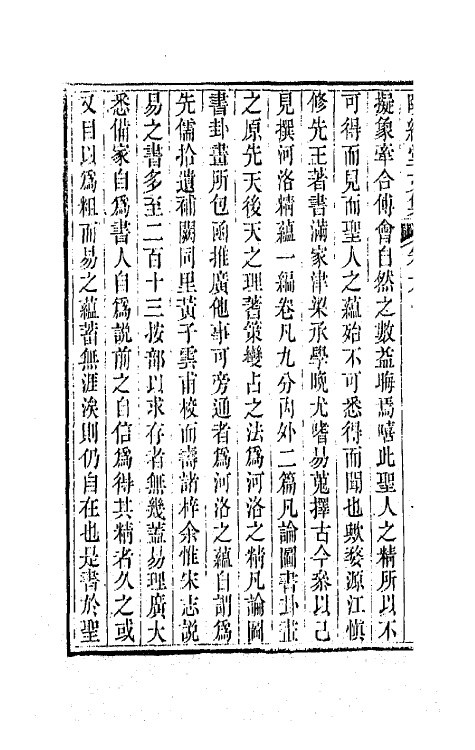 擬象牽合傅會自然之數益晦焉嘻此聖人之精所以不
可得而見而聖人之蘊殆不可悉得而聞也歟婺源江愼
修先王著書滿家津梁承學晚尤嗜易蒐擇古今叅以己
見撰河洛精蘊一編卷凡九分內外二篇凡論圖書卦畫
之原先天後天之理蓍策變占之法爲河洛之精凡論圖
書卦畫所包函推廣他事可旁通者爲河洛之蘊自謂爲
先儒拾遺補闕同里黃子雲甫校而壽諸梓余惟宋志說
易之書多至二百十三按部以求存者無幾蓋易理廣大
悉備家自爲書人自爲說前之自信爲得其精者久之或
又目以爲粗而易之蘊蓄無涯涘則仍自在也是書於聖